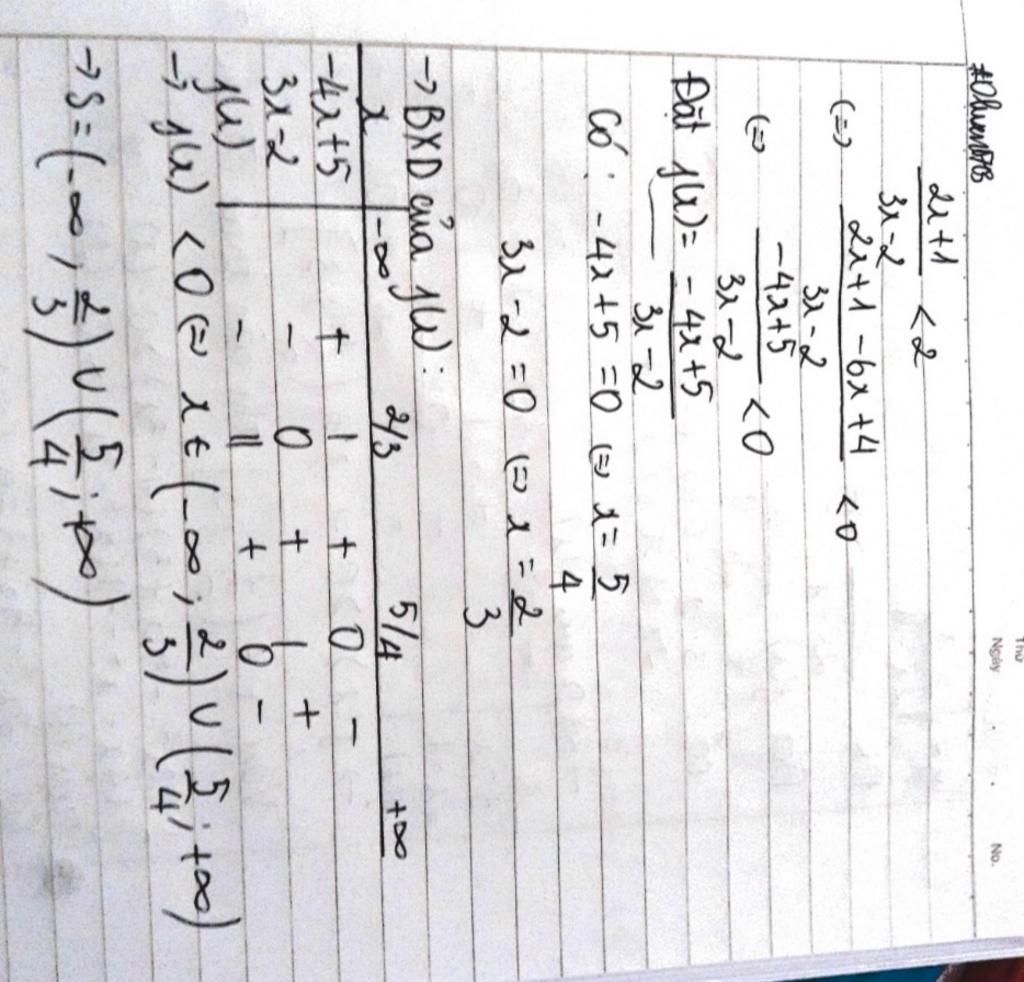 Thứ
Ngày . . No.
2x+1 / 3x-2 < 2
(=) 2x+1-6x+4 / 3x-2 < 0
(=) -4x+5 / 3x-2 < 0
Đặt f(x) = -4x+5 / 3x-2
Có: -4x+5=0 (=) x = 5/4
3x-2=0 (=) x = 2/3
→ BXD của f(x):
x -∞ 2/3 5/4 +∞
-4x+5 + | + 0 -
3x-2 - 0 + | +
f(x) - || + 0 -
→ f(x) < 0 (=) x ∈ (-∞; 2/3) ∪ (5/4; +∞)
→ S = (-∞, 2/3) ∪ (5/4; +∞)